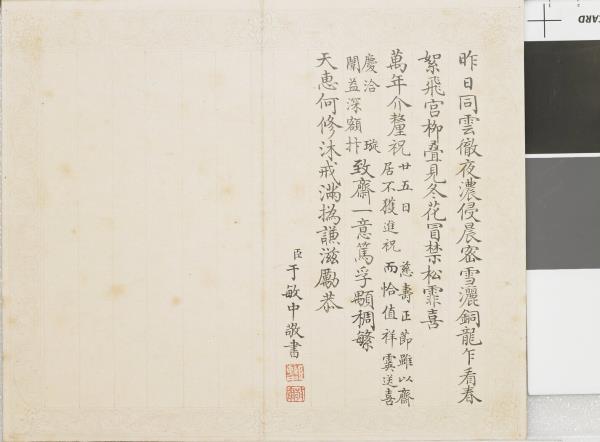 昨日同雲徹夜濃侵晨密雪灑銅龍乍看春
絮飛宮柳疊見冬花冒禁松霏喜
萬年介釐祝
廿五日 慈壽正節雖以齋
居不獲進祝 而恰值祥霙送喜
慶洽 璇
闈益深額抃
致齋一意篤孚顒稠繁
天惠何修沐戒滿撝謙滋勵恭
臣于敏中敬書
CARD